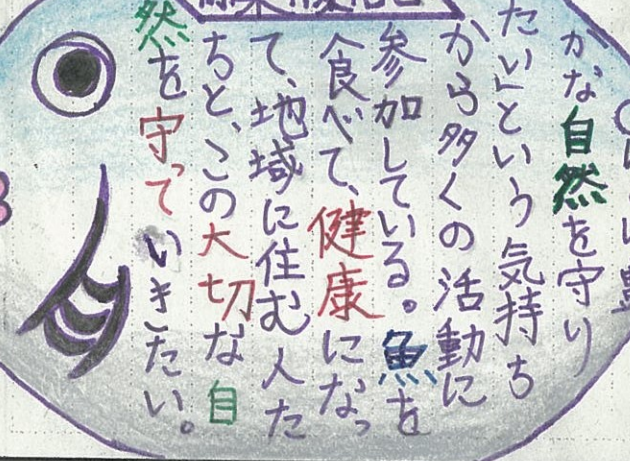 かな自然を守り
たい」という気持ち
から多くの活動に
参加している。魚を
食べて、健康になっ
て、地域に住む人た
ちと、この大切な自
然を守っていきたい。